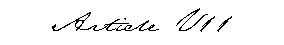 Article VII